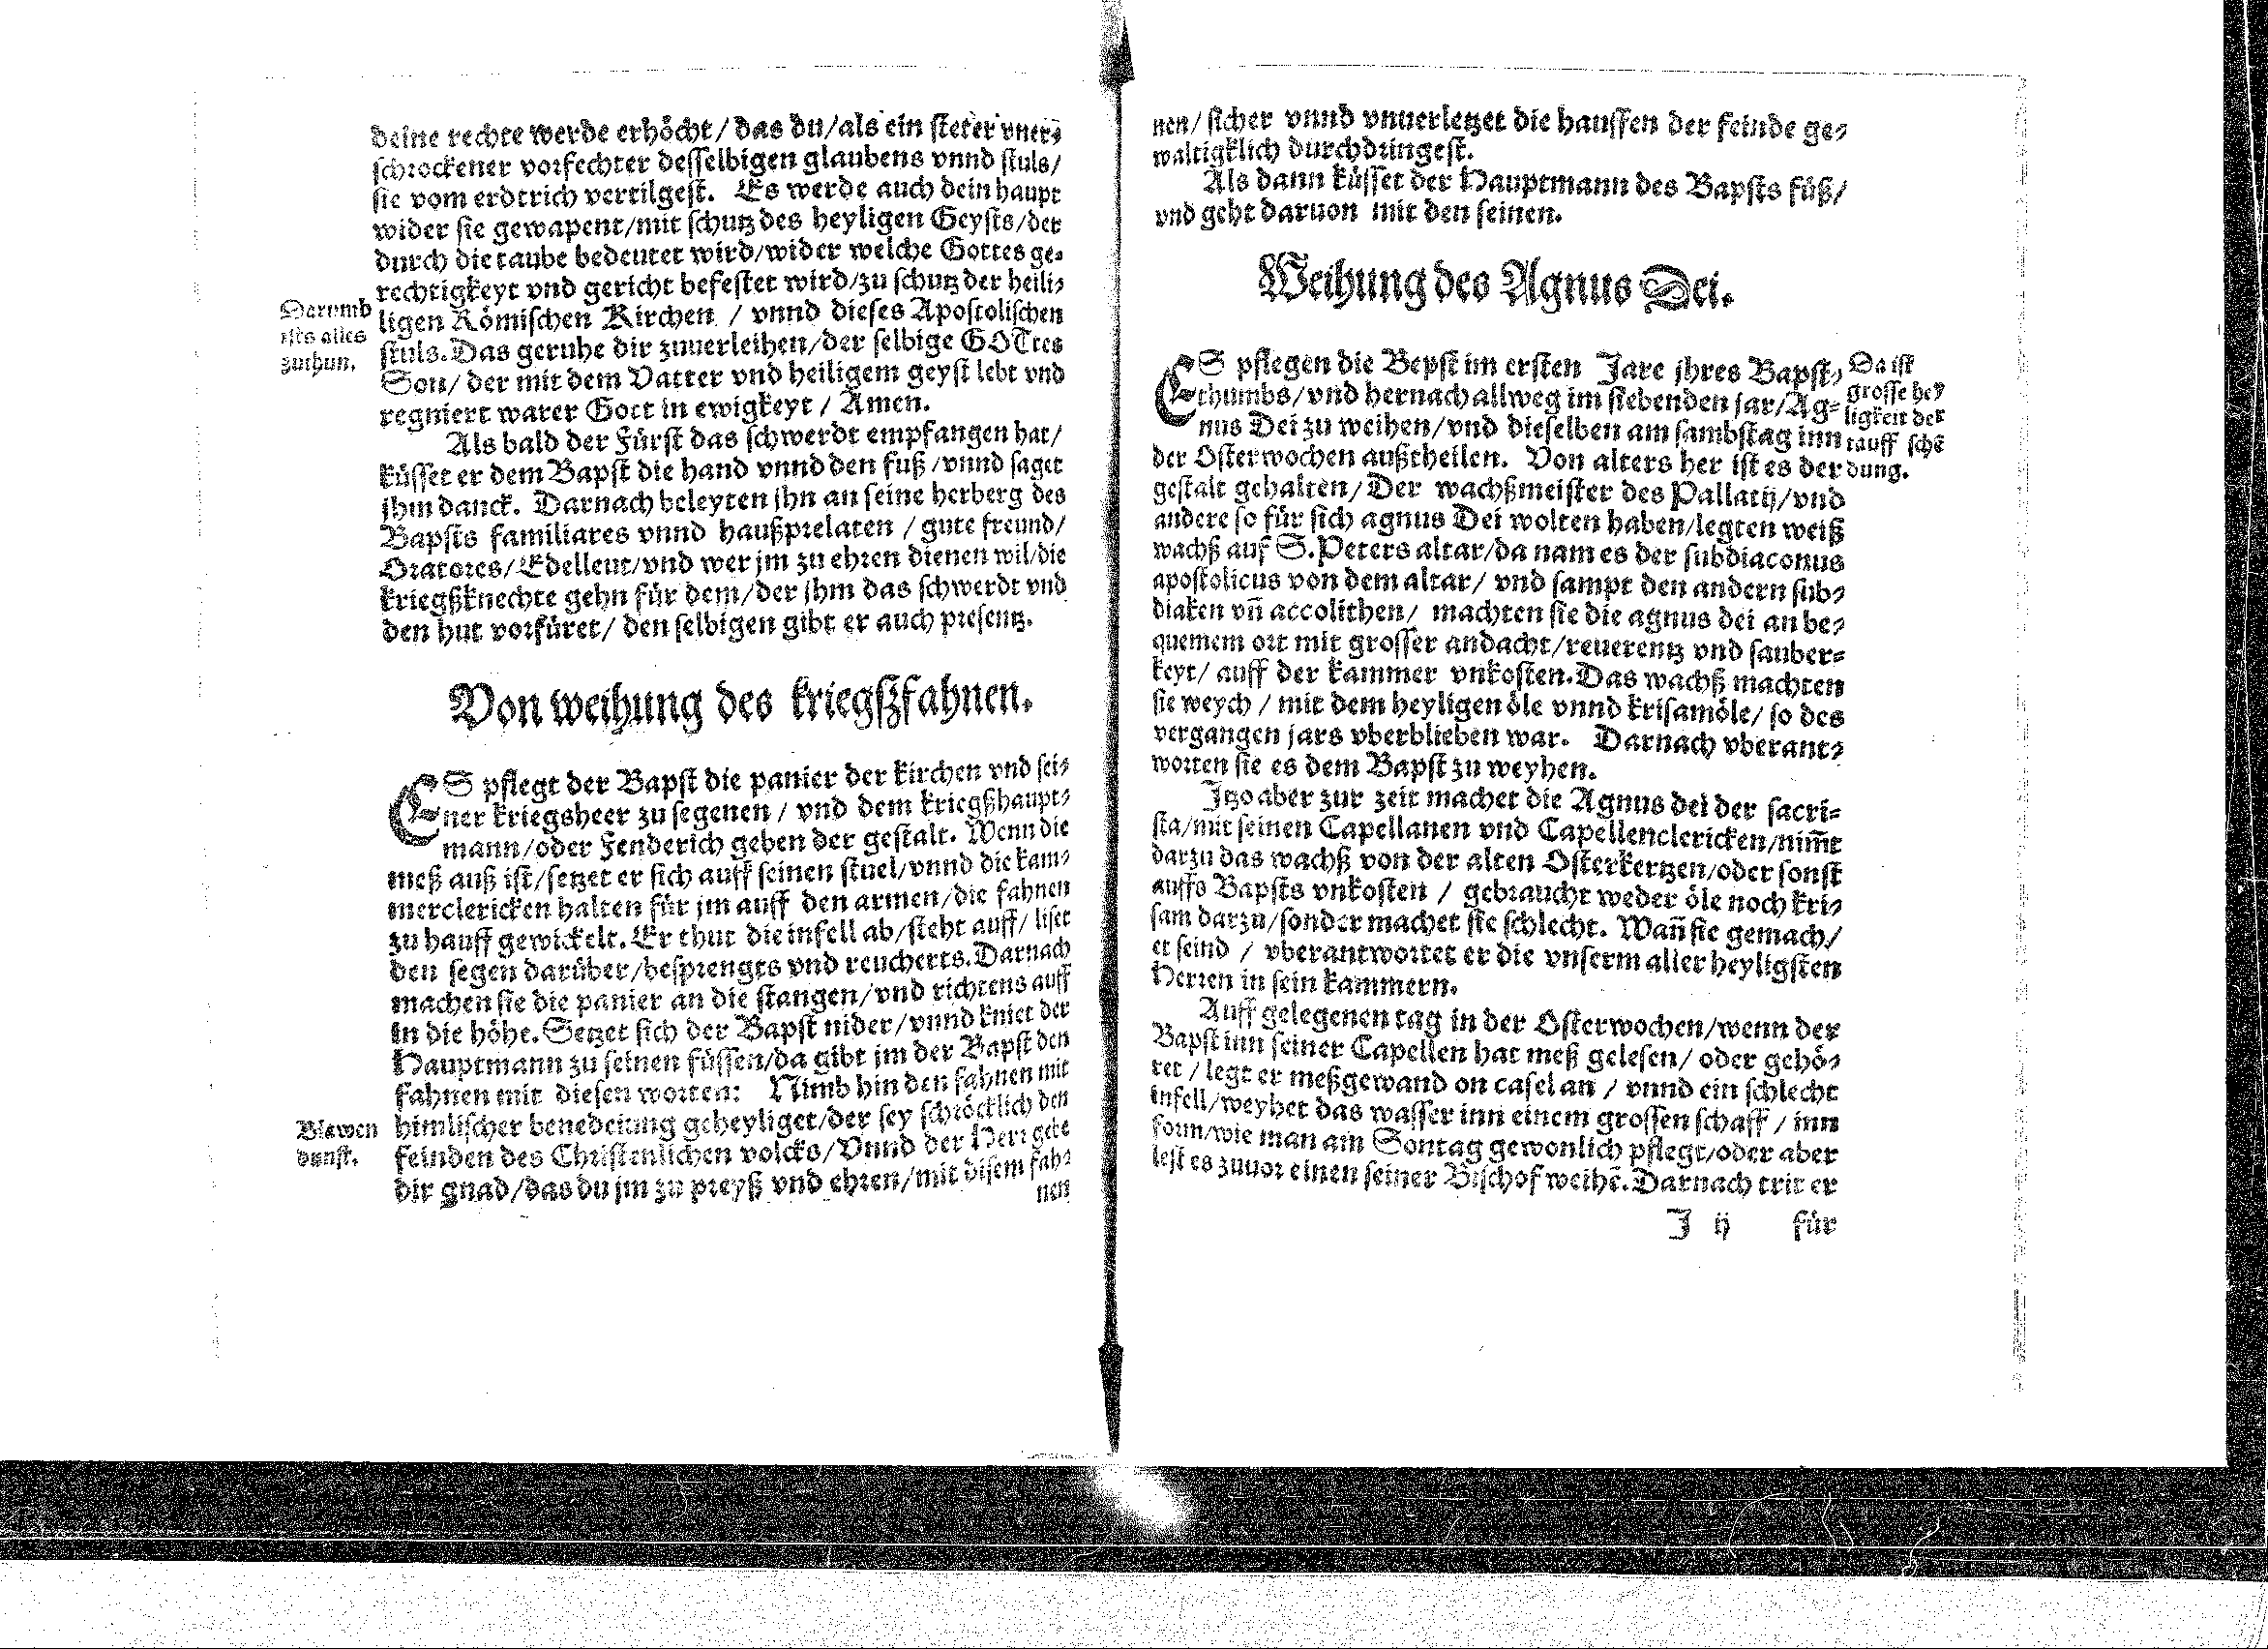 deine rechte werde erhöcht / das du / als ein steter vner⸗
schrockener vorfechter desselbigen glaubens vnnd stuls /
sie vom erdtrich vertilgest. Es werde auch dein haupt
wider sie gewapent / mit schutz des heyligen Geysts / der
durch die taube bedeutet wird / wider welche Gottes ge⸗
rechtigkeyt vnd gericht befestet wird / zu schutz der heili⸗
ligen Römischen Kirchen / vnnd dieses Apostolischen
stuls. Das geruhe dir zuuerleihen / der selbige GOTtes
Son / der mit dem Vatter vnd heiligem geyst lebt vnd
regniert warer Gott in ewigkeyt / Amen.
Darumb
ists alles
zuthun.
Als bald der Fürst das schwerdt empfangen hat /
küsset er dem Bapst die hand vnnd den fuß / vnnd saget
jhm danck. Darnach beleyten jhn an seine herberg des
Bapsts familiares vnnd haußprelaten / gute freund /
Oratores / Edelleut / vnd wer jm zu ehren dienen wil / die
kriegßknechte gehn für dem / der jhm das schwerdt vnd
den hut vorfüret / den selbigen gibt er auch presentz.
Von weihung des kriegszfahnen.
ES pflegt der Bapst die panier der kirchen vnd sei⸗
ner kriegsheer zu segenen / vnd dem kriegßhaupt⸗
mann / oder Fenderich geben der gestalt. Wenn die
meß auß ist / setzet er sich auff seinen stuel / vnnd die kam⸗
merclericken halten für jm auff den armen / die fahnen
zu hauff gewickelt. Er thut die infell ab / steht auff / liset
den segen darüber / besprengts vnd reucherts. Darnach
machen sie die panier an die stangen / vnd richtens auff
in die höhe. Setzet sich der Bapst nider / vnnd kniet der
Hauptmann zu seinen füssen / da gibt jm der Bapst den
fahnen mit diesen worten: Nimb hin den fahnen mit
himlischer benedeitung geheyliget / der sey schröcklich den
feinden des Christenlichen volcks / Vnnd der Herr gebe
dir gnad / das du jm zu preyß vnd ehren / mit disem fah⸗
nen
Blawen
dunst.
nen / sicher vnnd vnuerletzet die hauffen der feinde ge⸗
waltigklich durchdringest.
Als dann küsset der Hauptmann des Bapsts füß /
vnd geht daruon mit den seinen.
Weihung des Agnus Dei.
ES pflegen die Bepst im ersten Jare jhres Bapst⸗
thumbs / vnd hernach allweg im siebenden jar / Ag⸗
nus Dei zu weihen / vnd dieselben am sambstag inn
der Osterwochen außtheilen. Von alters her ist es der
gestalt gehalten / Der wachßmeister des Pallatij / vnd
andere so für sich agnus Dei wolten haben / legten weiß
wachß auf S. Peters altar / da nam es der subdiaconus
apostolicus von dem altar / vnd sampt den andern sub⸗
diaken vñ accolithen / machten sie die agnus dei an be⸗
quemem ort mit grosser andacht / reuerentz vnd sauber⸗
keyt / auff der kammer vnkosten. Das wachß machten
sie weych / mit dem heyligen öle vnnd krisamöle / so des
vergangen jars vberblieben war. Darnach vberant⸗
worten sie es dem Bapst zu weyhen.
Da ist
grosse hey
ligkeit der
tauff schē
dung.
Jtzo aber zur zeit machet die Agnus dei der sacri⸗
sta / mit seinen Capellanen vnd Capellenclericken / nim̄t
darzu das wachß von der alten Osterkertzen / oder sonst
auffs Bapsts vnkosten / gebraucht weder öle noch kri⸗
sam darzu / sonder machet sie schlecht. Wañ sie gemach /
et seind / vberantwortet er die vnserm aller heyligsten
Herren in sein kammern.
Auff gelegenen tag in der Osterwochen / wenn der
Bapst inn seiner Capellen hat meß gelesen / oder gehö⸗
ret / legt er meßgewand on casel an / vnnd ein schlecht
infell / weyhet das wasser inn einem grossen schaff / inn
form / wie man am Sontag gewonlich pflegt / oder aber
lest es zuuor einen seiner Bischof weihē. Darnach trit er
J ij für